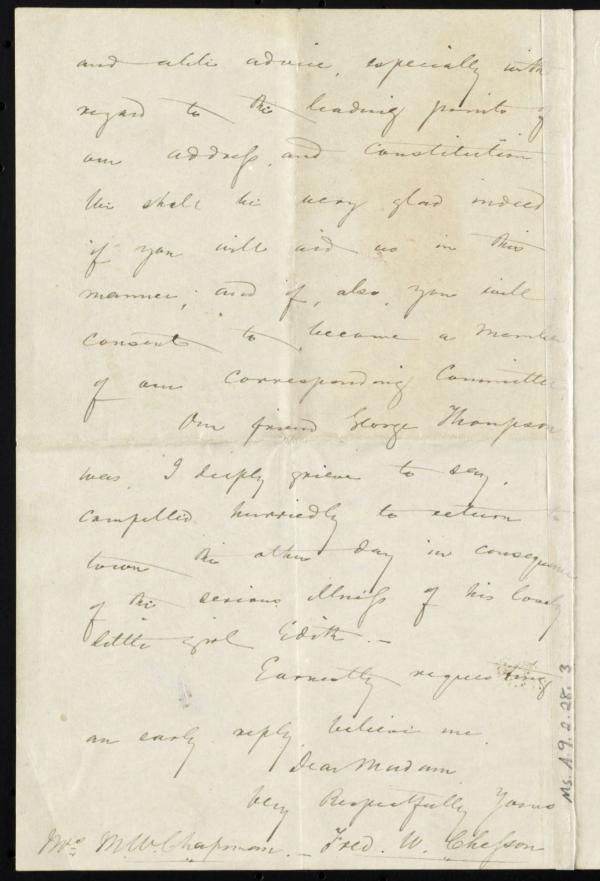 and able advice, especially with
regard to the leading points of
our address, and constitution
We shall be very glad indeed
if you will aid us in this
manner; and if, also, you will
consent to become a Member
of our Corresponding Committee.
Our friend George Thompson
was, I deeply grieve to say,
compelled hurriedly to return to
town the other day in consequence
of the serious illness of his lovely
little girl Edith. —
Earnestly requesting
an early reply, believe me,
Dear Madam,
Very Respectfully Yours
Mrs. M. W. Chapman. — Fred. W. Chesson
Ms. A.9.2.28.3